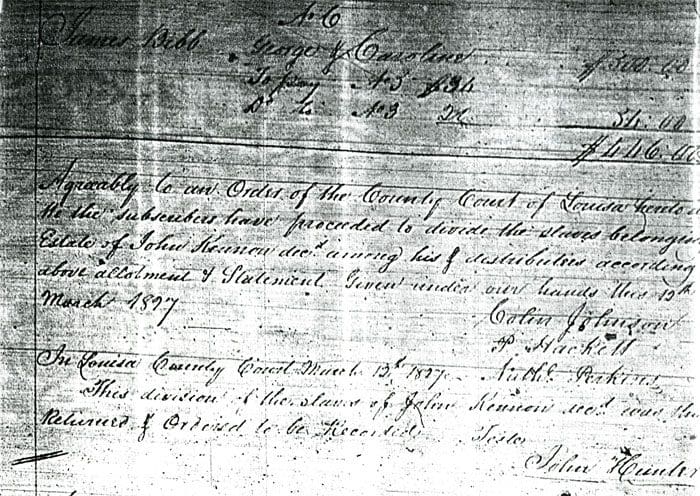 No 6
James Bibb George & Caroline $500.00
To pay No 5 $34
Do to No 3 54.00
$446.00
Agreeably to an Order of the County Court of Louisa hereto
We the subscribers have proceeded to divide the slaves belonging
Estate of John Kennon decd among his distributees according
above allotment & Statement Given under our hands this 12th
March 1827
Colin Johnson
P Hackett
Nathl Perkins
In Louisa County Court March 13th 1827
This division of the slaves of John Kennon decd was th
Returned & Ordered to be Recorded
Teste
John Hunter